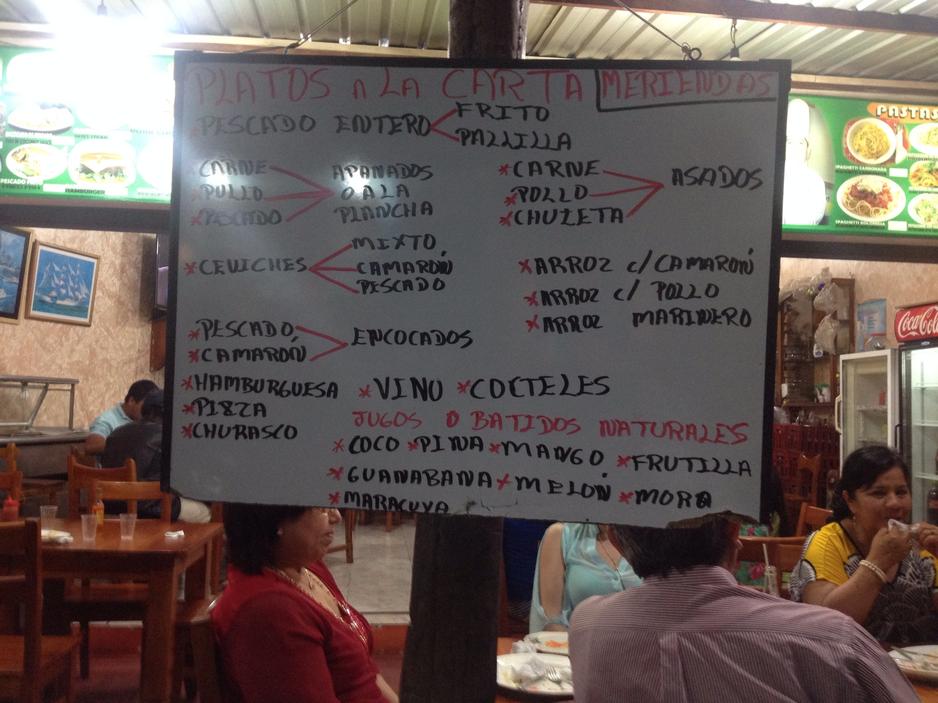 PLATOS A LA CARTA MERIENDAS
PESCADO ENTERO FRITO
PALLILLA
*CARNE
*PULLO
*PESCADO
APANADOS
O A LA
PLANCHA
*CARNE
*POLLO
*CHULETA
ASADOS
*CEVICHES
MIXTO
CAMARÓN
PESCADO
*ARROZ c/CAMARÓN
*ARROZ c/ POLLO
*ARROZ MARINERO
*PESCADO
*CAMARÓN
ENCOCADOS
*HAMBURGUESA
*PIZZA
*CHURASCO
*VINO *COCTELES
JUGOS O BATIDOS NATURALES
*COCO *PIÑA *MANGO *FRUTILLA
*GUANABANA *MELÓN *MORA
*MARACUYA
HAMBURGER
PASTAS
SPAGHETTI CARBONARA
SPAGHETTI BOLOGNESA
Coca-Cola